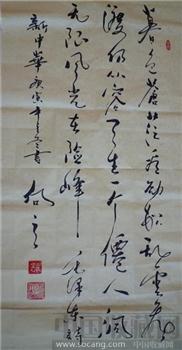 暮色蒼茫看劲松乱雲飛
渡仍从容天生一个僊人洞
无限风光在险峰 毛泽东詩
新中華庚寅年冬書
www.socang.com
中国收藏网